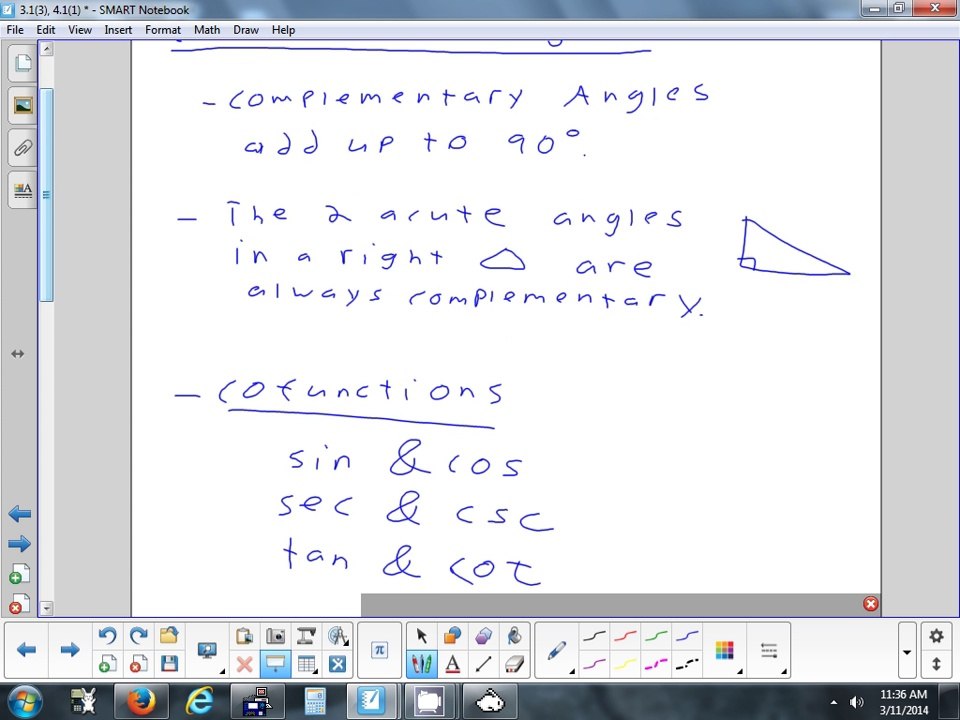 3.1(3), 4.1(1) * - SMART Notebook
File Edit View Insert Format Math Draw Help
- Complementary Angles
add up to 90°.
- The 2 acute angles
in a right △ are
always complementary.
- Cofunctions
sin & cos
sec & csc
tan & cot
π
A
11:36 AM
3/11/2014